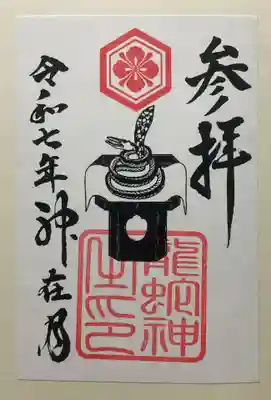 参拝
龍蛇神
令和七年神在月